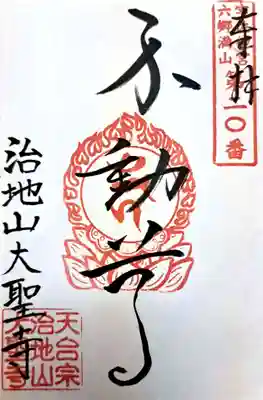 奉拝
六郷満山
第一〇番
不動尊
治地山大聖寺
天台宗
治地山
大聖寺